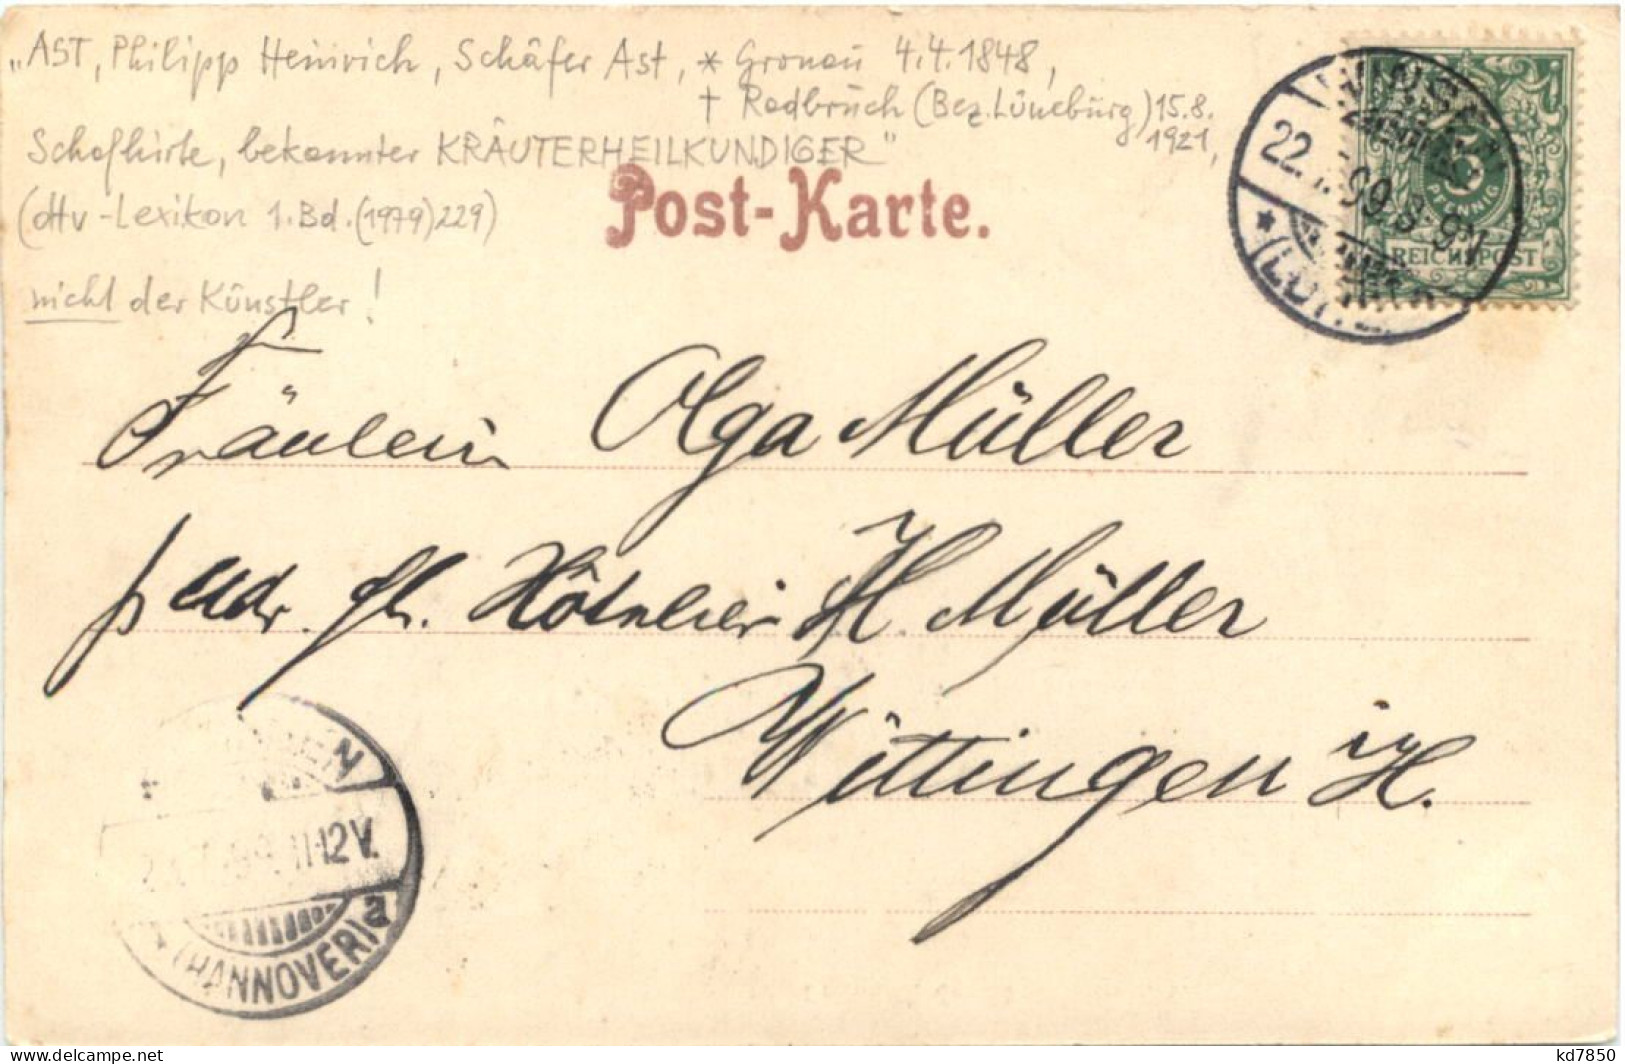 „AST, Philipp Heinrich, Schäfer Ast, * Gronau 4.4.1848,
† Radbruch (Bez. Lüneburg) 15.8.
1921,
Schafhirte, bekannter KRÄUTERHEILKUNDIGER"
(dtv-Lexikon 1.Bd.(1979)229)
nicht der Künstler!
Post-Karte.
WINSEN
22. 99 8-9N
5
PFENNIG
REICHSPOST
Fräulein Olga Müller
p adr. H. Müller
Wittingen i/H.
11-12V.
(HANNOVER) a
kd7850